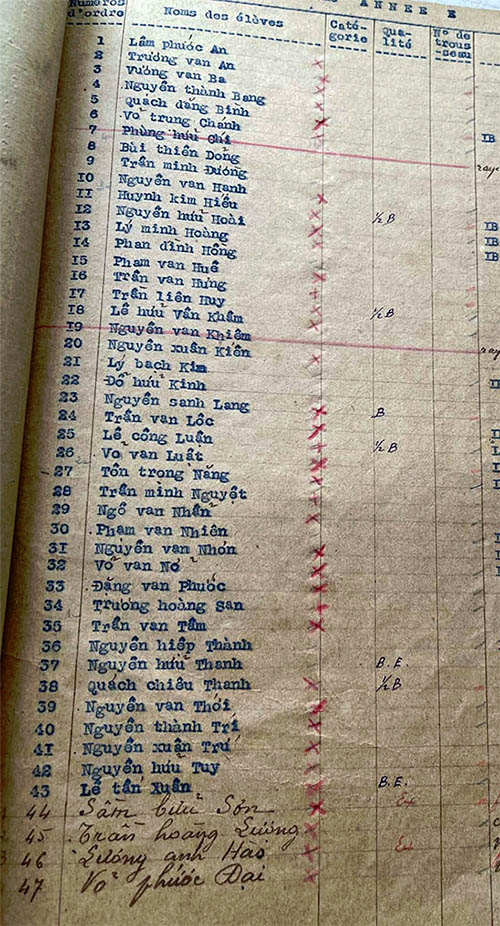 ANNEE E
Numéros d'ordre Noms des élèves Caté-gorie Qua-lité N° de trous-seau
1 Lâm phước An
2 Trương van An
3 Vương van Ba
4 Nguyễn thành Bang
5 Quách dăng Bình
6 Võ trung Chanh
7 Phùng hửu Chi IB
8 Bùi thiên Dông
9 Trần minh Đương
10 Nguyễn van Hanh
11 Huynh kim Hiếu
12 Nguyễn hửu Hoài ½ B
13 Lý minh Hoàng IB
14 Phan đình Hồng IB
15 Phạm van Huê IB
16 Trần van Hưng
17 Trần liên Huy
18 Lê hửu Vân Khâm ½ B
19 Nguyễn van Khiêm
20 Nguyễn xuân Kiên
21 Lý bạch Kim
22 Đổ hửu Kinh
23 Nguyễn sanh Lang
24 Trần van Lôc B
25 Lê công Luận
26 Vo van Luât ½ B
27 Tôn trọng Năng
28 Trần minh Nguyệt
29 Ngô van Nhẫn
30 Phạm van Nhiên
31 Nguyễn van Nhơn
32 Võ van Nở
33 Đặng van Phước
34 Trương hoàng San
35 Trần van Tâm
36 Nguyễn hiêp Thành
37 Nguyễn hửu Thanh B.E.
38 Quách chiêu Thanh ½ B
39 Nguyễn van Thới
40 Nguyễn thành Trí
41 Nguyễn xuân Trư
42 Nguyễn hửu Tuy
43 Lê tấn Xuân B.E.
44 Sâm bửu Sơn Ex
45 Trần hoàng Lương
46 Lương anh Hào Ex
47 Vo phước Đại